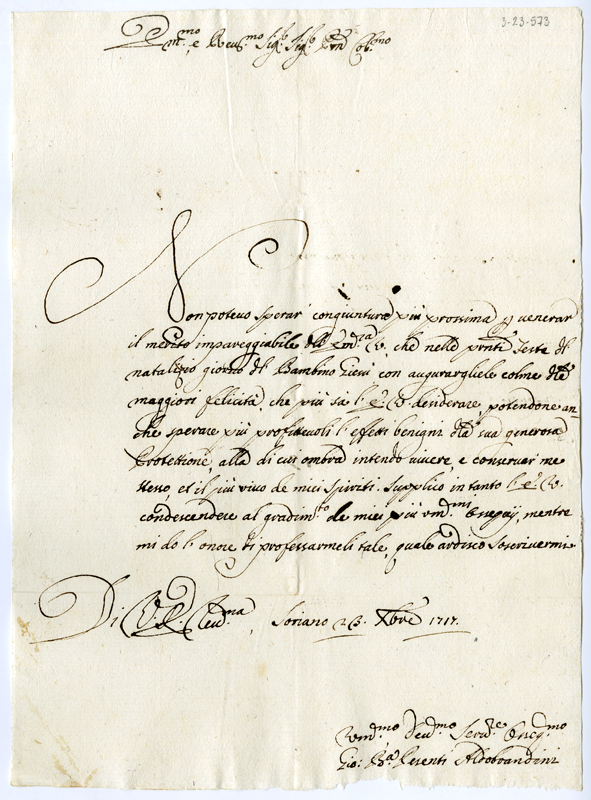 3-23-573
Em.mo e Reu.mo Sig.r Sig.r Pron Col.mo
Non poteuo sperar' congiuntura più prossima p venerar
il merito impareggiabile dell' Em.za V. che nelle pnti feste del
natalizio giorno del Bambino Giesù con augurargliele colme delle
maggiori felicità, che più sà l' E. V. desiderare, potendone an-
che sperare più profitteuoli l' effetti benigni della sua generosa
Protettione, alla di cui ombra intendo viuere, e conseruar me
stesso, et il più viuo de miei spiriti. Supplico in tanto l' E. V.
condescendere al gradim.to de miei più um.mi ossequij, mentre
mi do l' onore di professarmeli tale, quale ardisco soscriuermi
Di V. E. Reu.ma, Soriano 23. Xbre 1717.
Um.mo Deu.mo Seru.re Osseq.mo
Gio: B.a Resenti Aldobrandini